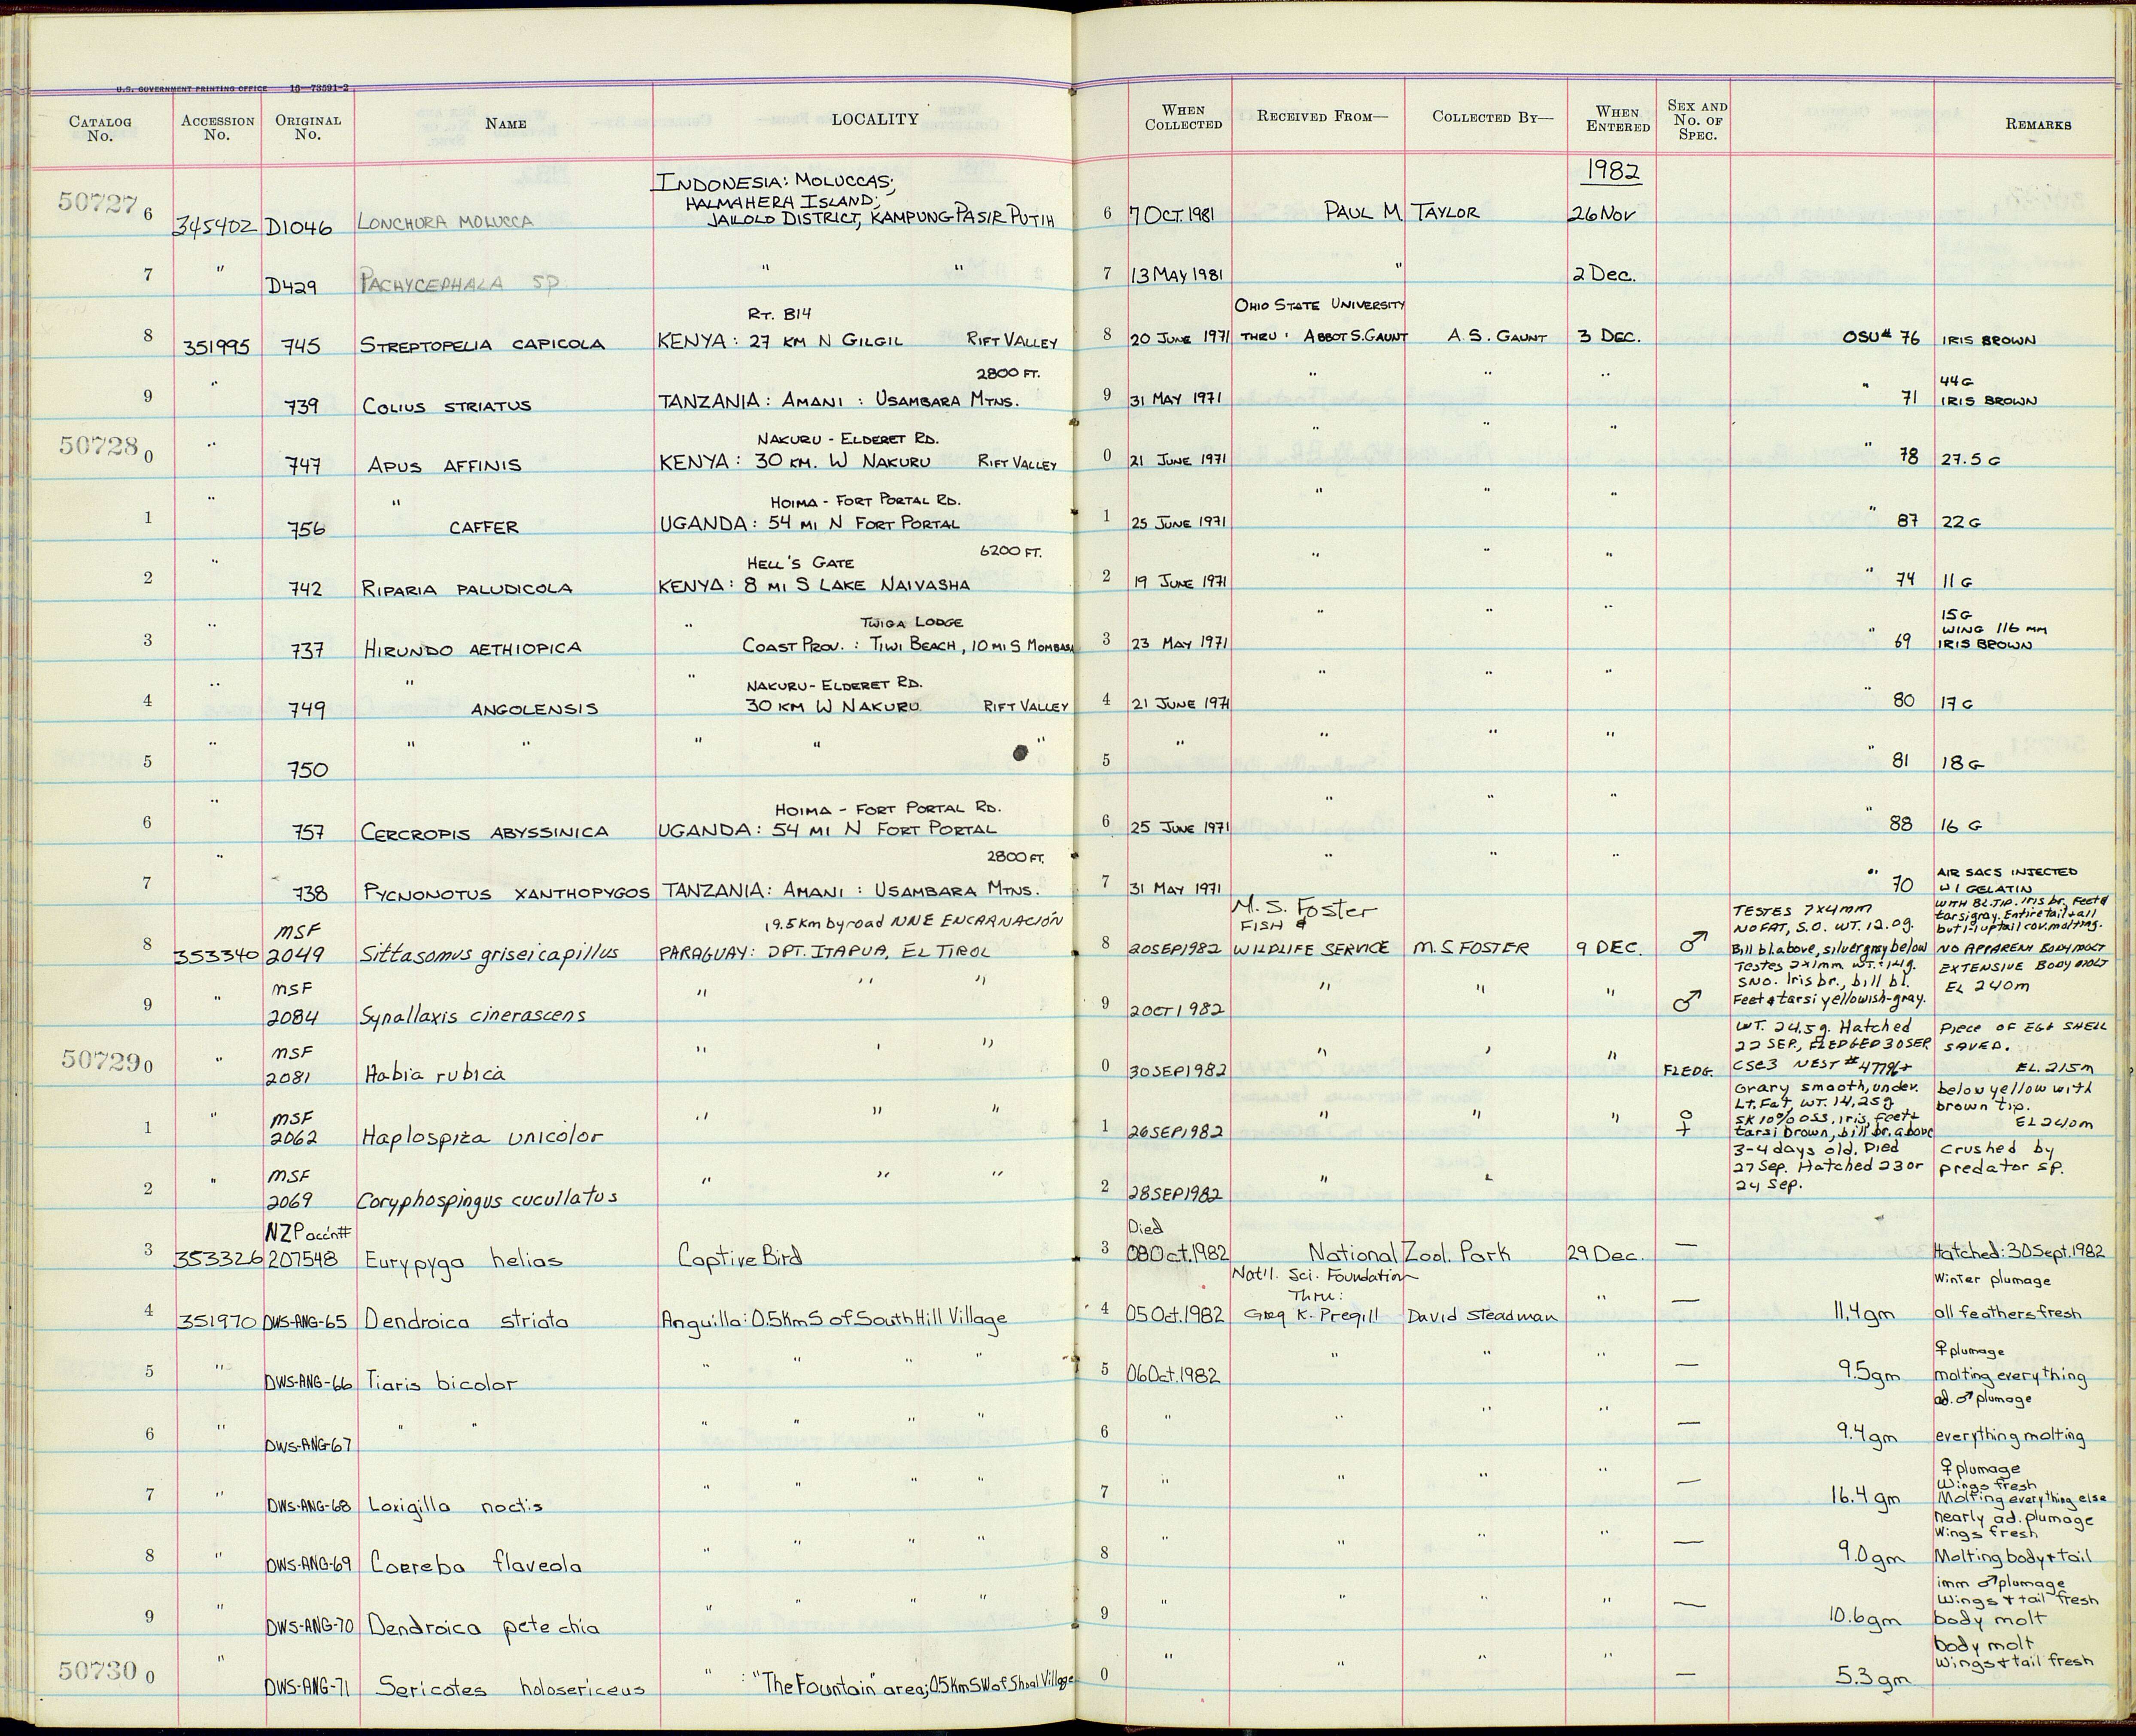 U.S. GOVERNMENT PRINTING OFFICE 16—73591-2
CATALOG No. ACCESSION No. ORIGINAL No. NAME LOCALITY WHEN COLLECTED RECEIVED FROM— COLLECTED BY— WHEN ENTERED SEX AND No. OF SPEC. REMARKS
1982
INDONESIA: MOLUCCAS;
HALMAHERA ISLAND;
50727 6 345402 D1046 LONCHURA MOLUCCA JAILOLO DISTRICT, KAMPUNG PASIR PUTIH 6 7 OCT. 1981 PAUL M. TAYLOR 26 NOV
7 " D429 PACHYCEPHALA SP. " " 7 13 MAY 1981 " 2 Dec.
RT. B14 OHIO STATE UNIVERSITY
8 351995 745 STREPTOPELIA CAPICOLA KENYA: 27 KM N GILGIL RIFT VALLEY 8 20 JUNE 1971 THRU: ABBOT S. GAUNT A. S. GAUNT 3 DEC. OSU# 76 IRIS BROWN
2800 FT. 44 G
9 " 739 COLIUS STRIATUS TANZANIA: AMANI: USAMBARA MTNS. 9 31 MAY 1971 " " " " 71 IRIS BROWN
NAKURU - ELDERET RD.
50728 0 " 747 APUS AFFINIS KENYA: 30 KM. W NAKURU RIFT VALLEY 0 21 JUNE 1971 " " " " 78 27.5 G
HOIMA - FORT PORTAL RD.
1 " 756 " CAFFER UGANDA: 54 MI N FORT PORTAL 1 25 JUNE 1971 " " " " 87 22 G
HELL'S GATE 6200 FT.
2 " 742 RIPARIA PALUDICOLA KENYA: 8 MI S LAKE NAIVASHA 2 19 JUNE 1971 " " " " 74 11 G
TWIGA LODGE 15 G
WING 116 MM
3 " 737 HIRUNDO AETHIOPICA " COAST PROV.: TIWI BEACH, 10 MI S MOMBASA 3 23 MAY 1971 " " " " 69 IRIS BROWN
NAKURU - ELDERET RD.
4 " 749 " ANGOLENSIS " 30 KM W NAKURU RIFT VALLEY 4 21 JUNE 1971 " " " " 80 17 G
5 " 750 " " " " " 5 " " " " " 81 18 G
HOIMA - FORT PORTAL RD.
6 " 757 CERCROPIS ABYSSINICA UGANDA: 54 MI N FORT PORTAL 6 25 JUNE 1971 " " " " 88 16 G
2800 FT. AIR SACS INJECTED
7 " 738 PYCNONOTUS XANTHOPYGOS TANZANIA: AMANI: USAMBARA MTNS. 7 31 MAY 1971 " " " " 70 W/ GELATIN
M. S. Foster TESTES 7x4mm WITH BL. TIP. Iris br. Feet &
MSF 19.5 km by road NNE ENCARNACIÓN FISH & NO FAT, S.O. WT. 12.0g. tarsi gray. Entire tail + all
but 1 uptail cov. molting.
8 353340 2049 Sittasomus griseicapillus PARAGUAY: DPT. ITAPUA, EL TIROL 8 20 SEP 1982 WILDLIFE SERVICE M. S. FOSTER 9 DEC. ♂ Bill bl. above, silver gray below NO APPARENT BODY MOLT
MSF Testes 2x1mm WT. 14g. EXTENSIVE BODY MOLT
SNO. Iris br., bill bl. EL 240m
9 " 2084 Synallaxis cinerascens " " " 9 2 OCT 1982 " " " ♂ Feet & tarsi yellowish-gray.
MSF WT. 24.5g. Hatched Piece OF EGG SHELL
22 SEP., FLEDGED 30 SEP SAVED.
50729 0 " 2081 Habia rubica " " " 0 30 SEP 1982 " " " FLEDG. CSE3 NEST # EL. 215m
MSF Ovary smooth, under. below yellow with
Lt. Fat, WT. 14.25g brown tip.
1 " 2062 Haplospiza unicolor " " " 1 26 SEP 1982 " " " ♀ SK 10% OSS. iris, feet + EL 240m
tarsi brown, bill br. above
MSF 3-4 days old. Died Crushed by
27 Sep. Hatched 23 or predator sp.
2 " 2069 Coryphospingus cucullatus " " " 2 28 SEP 1982 " " 24 Sep.
NZP accn# Died
3 353326 207548 Eurypyga helias Captive Bird 3 08 Oct. 1982 National Zool. Park 29 Dec. — Hatched: 30 Sept. 1982
Nat'l. Sci. Foundation Winter plumage
Thru:
4 351970 DWS-ANG-65 Dendroica striata Anguilla: 0.5 Km S of South Hill Village 4 05 Oct. 1982 Greg K. Pregill David Steadman " — 11.4 gm all feathers fresh
♀ plumage
5 " DWS-ANG-66 Tiaris bicolor " " " " 5 06 Oct. 1982 " " " — 9.5 gm molting everything
ad. ♂ plumage
6 " DWS-ANG-67 " " " " " " 6 " " " " — 9.4 gm everything molting
♀ plumage
Wings fresh
7 " DWS-ANG-68 Loxigilla noctis " " " " 7 " " " " — 16.4 gm Molting everything else
nearly ad. plumage
Wings fresh
8 " DWS-ANG-69 Coereba flaveola " " " " 8 " " " " — 9.0 gm Molting body + tail
imm ♂ plumage
Wings + tail fresh
9 " DWS-ANG-70 Dendroica petechia " " " " 9 " " " " — 10.6 gm body molt
body molt
Wings + tail fresh
50730 0 " DWS-ANG-71 Sericotes holosericeus " : "The Fountain" area; 0.5 Km SW of Shoal Village 0 " " " " — 5.3 gm